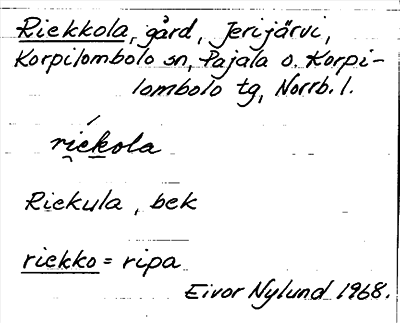 Riekkola, gård, Jerijärvi,
Korpilombolo sn, Pajala o. Korpi-
lombolo tg, Norrb. l.
riekola
Riekula, bek
riekko = ripa
Eivor Nylund 1968.